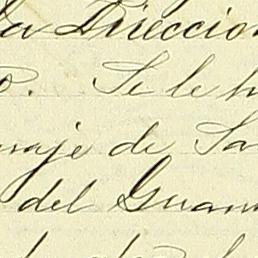 la Direccion
o. Se le h
naje de Sa
del Guana